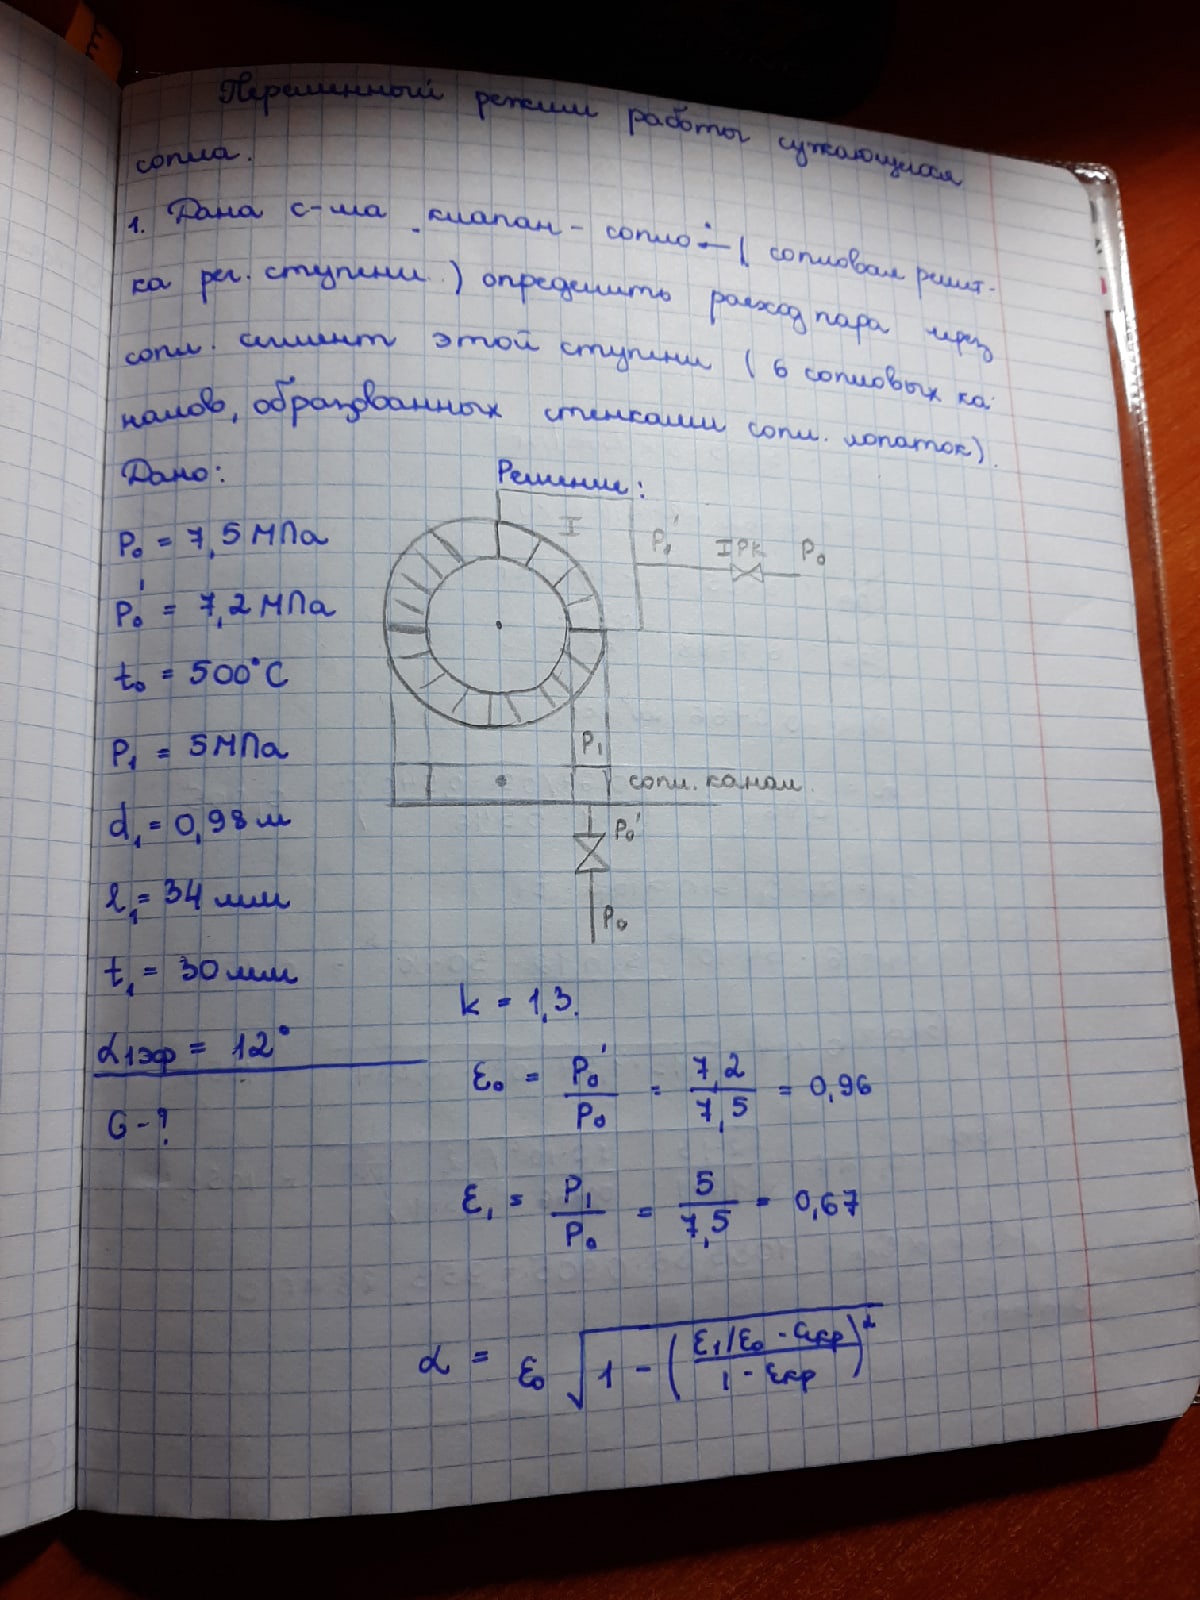 Переменный режим работы сужающегося
сопла.
1. Дана с-ма клапан - сопло - ( сопловая решёт-
ка рег. ступени ) определить расход пара через
сопл. сегмент этой ступени ( 6 сопловых ка-
налов, образованных стенками сопл. лопаток).
Дано:
Решение:
P₀ = 7,5 МПа
P₀' = 7,2 МПа
t₀ = 500°C
P₁ = 5 МПа
d₁ = 0,98 м
l₁ = 34 мм
t₁ = 30 мм
α₁эф = 12°
G - ?
I
P₀' I РК P₀
P₁
сопл. канал
P₀'
P₀
k = 1,3.
ε₀ = P₀'/P₀ = 7,2/7,5 = 0,96
ε₁ = P₁/P₀ = 5/7,5 = 0,67
α = ε₀ √(1 - ((ε₁/ε₀ - εкр)/(1 - εкр))²)